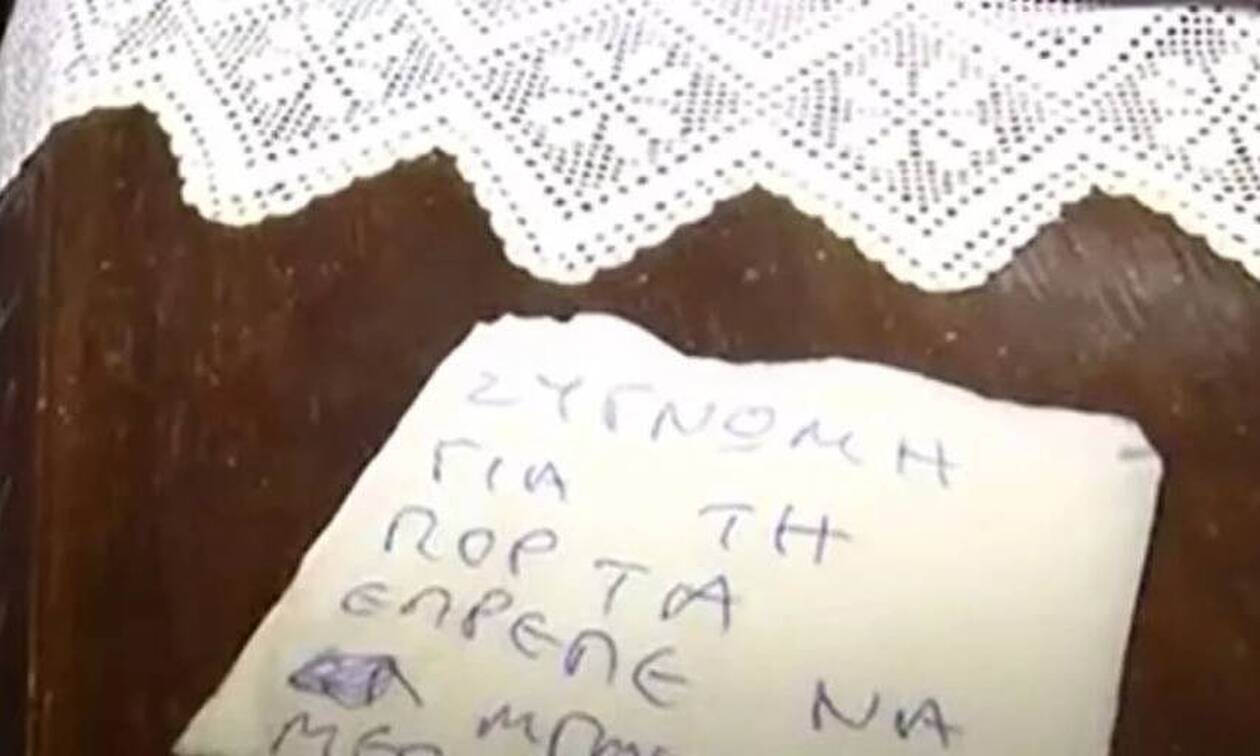 ΣΥΓΝΩΜΗ
ΓΙΑ ΤΗ
ΠΟΡΤΑ
ΕΠΡΕΠΕ ΝΑ